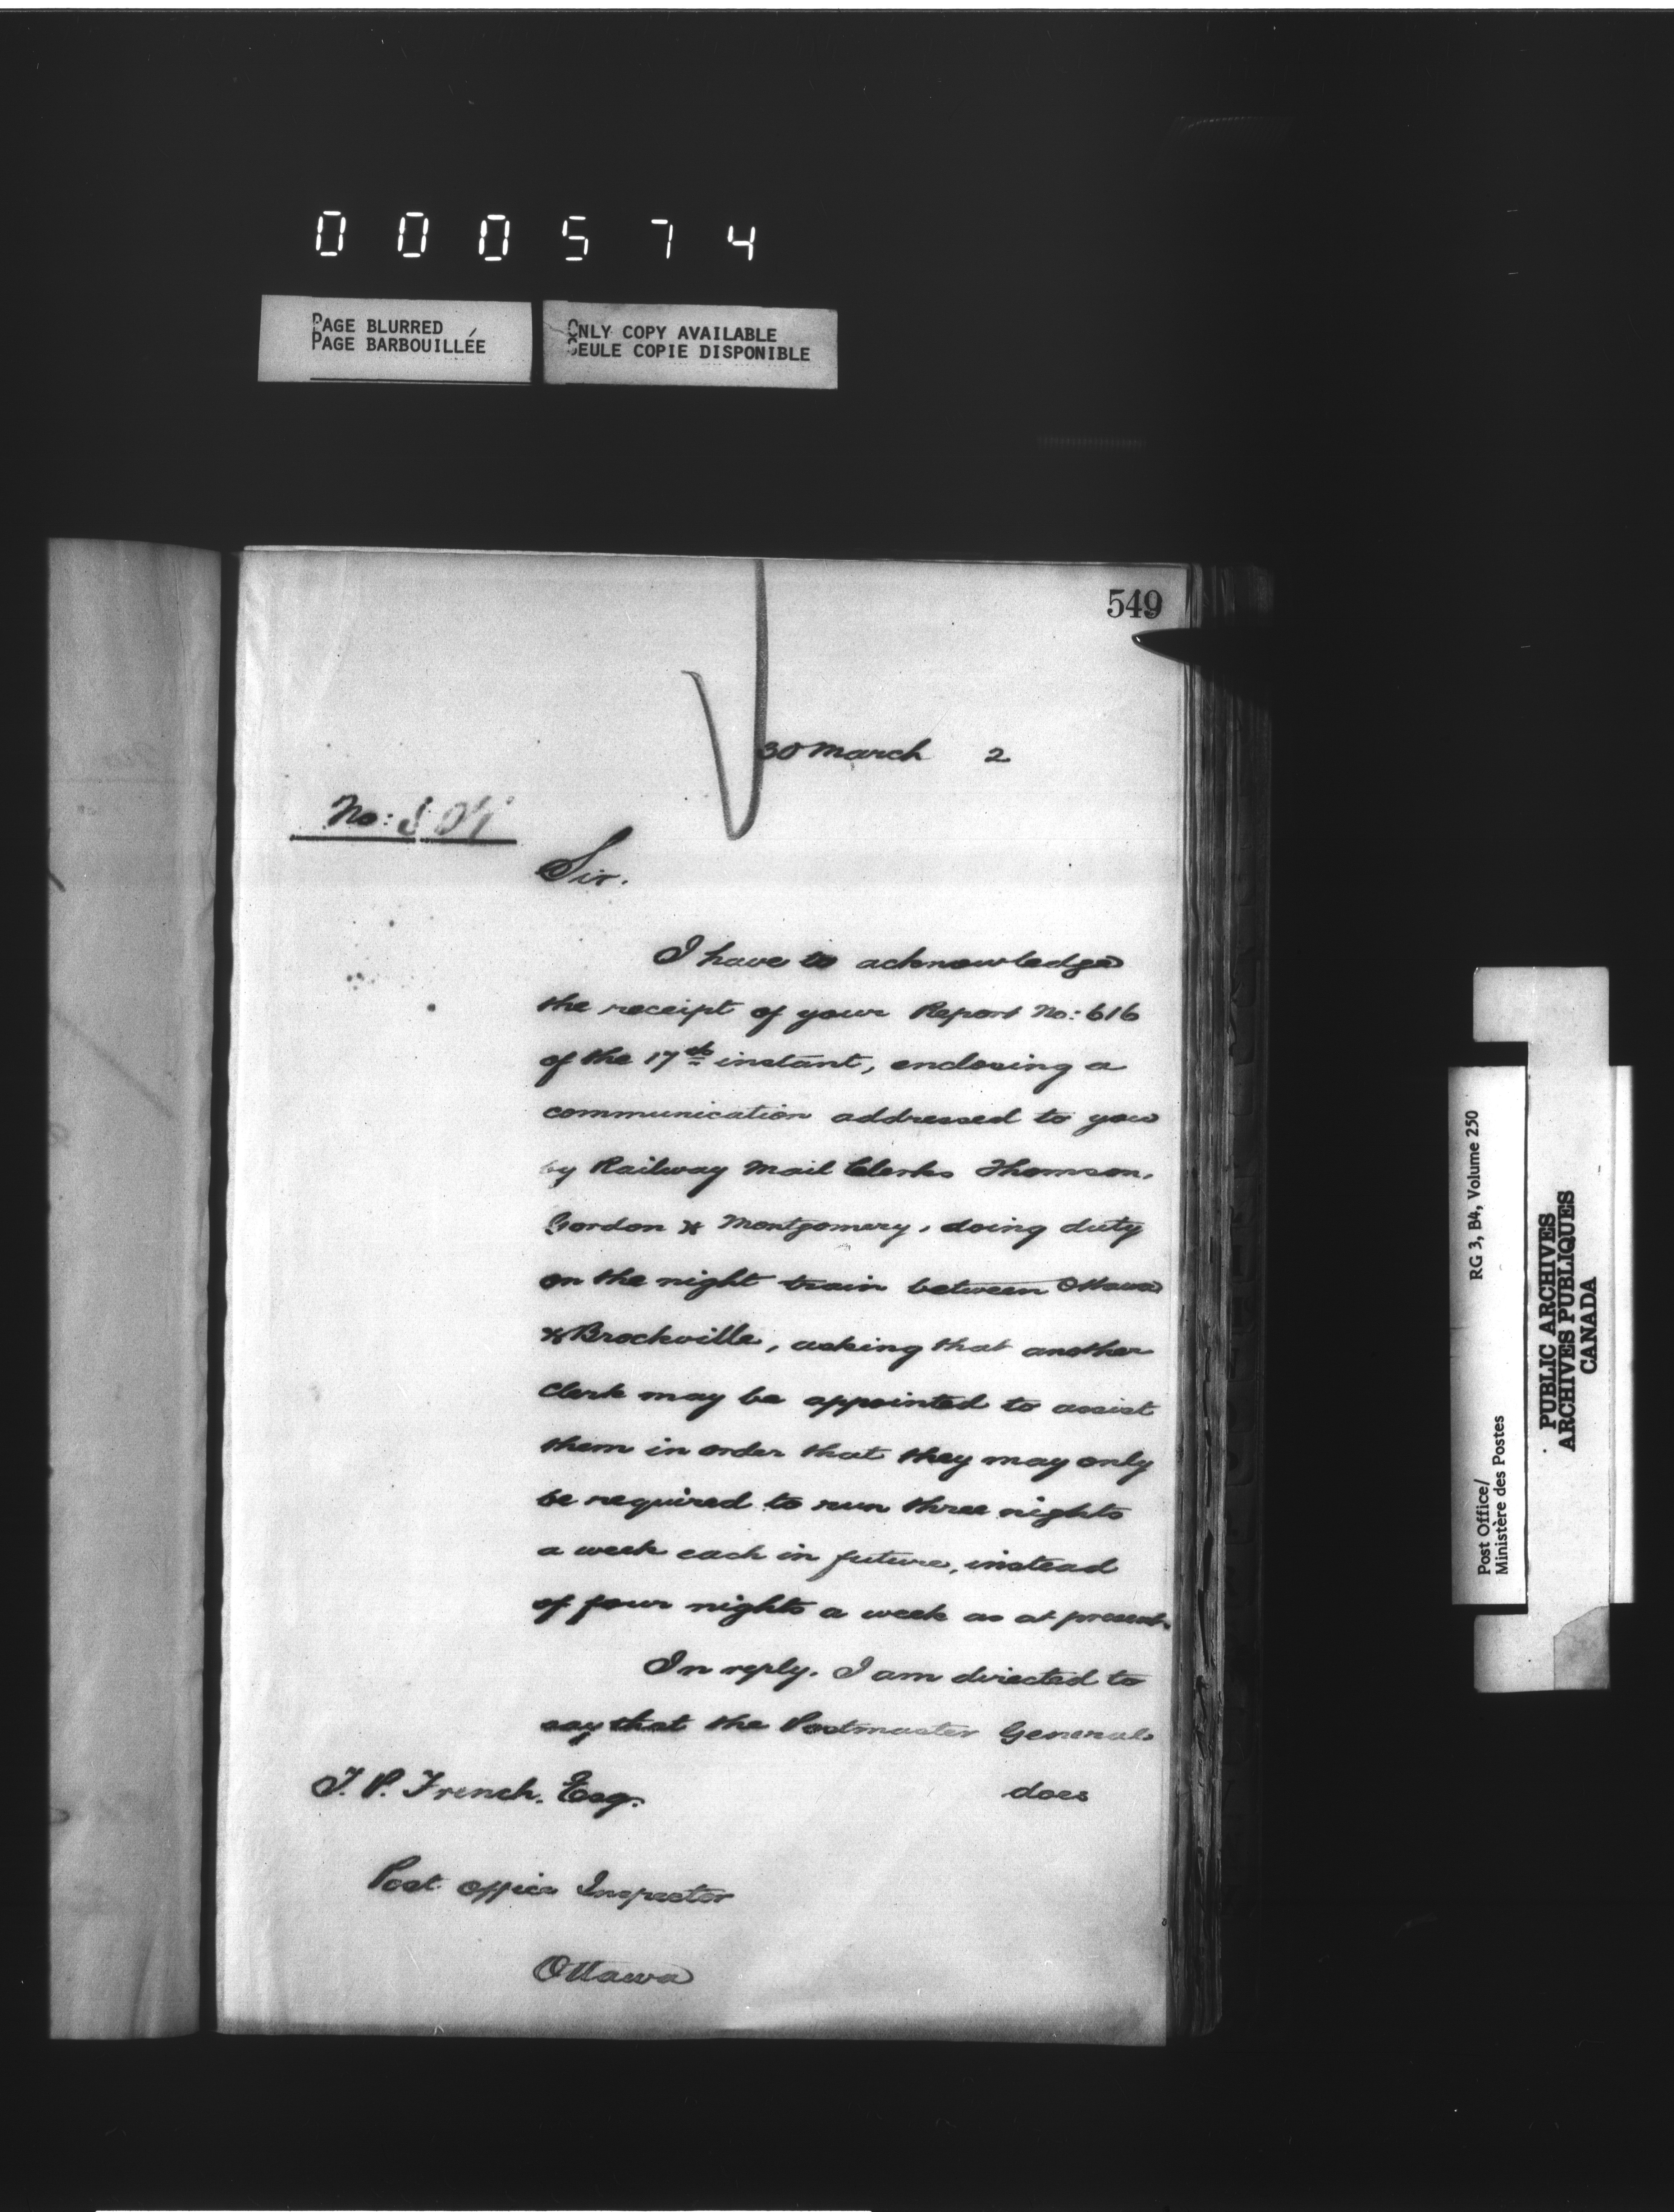 000574
PAGE BLURRED
PAGE BARBOUILLÉE
ONLY COPY AVAILABLE
SEULE COPIE DISPONIBLE
549
30 March 2
No:
Sir.
I have to acknowledge
the receipt of your Report No: 616
of the 17th instant, enclosing a
communication addressed to you
by Railway Mail Clerks Thomson,
Gordon & Montgomery, doing duty
on the night train between Ottawa
& Brockville, asking that another
Clerk may be appointed to assist
them in order that they may only
be required to run three nights
a week each in future, instead
of four nights a week as at present.
In reply. I am directed to
say that the Postmaster General
does
T. P. French. Esq.
Post Office Inspector
Ottawa
Post Office/ RG 3, B4, Volume 250
Ministère des Postes
PUBLIC ARCHIVES
ARCHIVES PUBLIQUES
CANADA